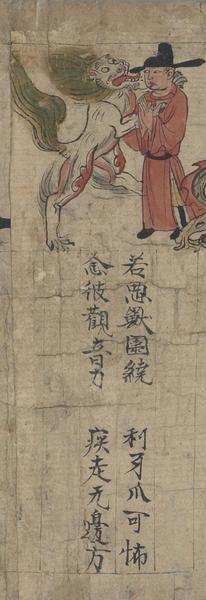 若惡獸圍繞 利牙爪可怖
念彼觀音力 疾走无邊方